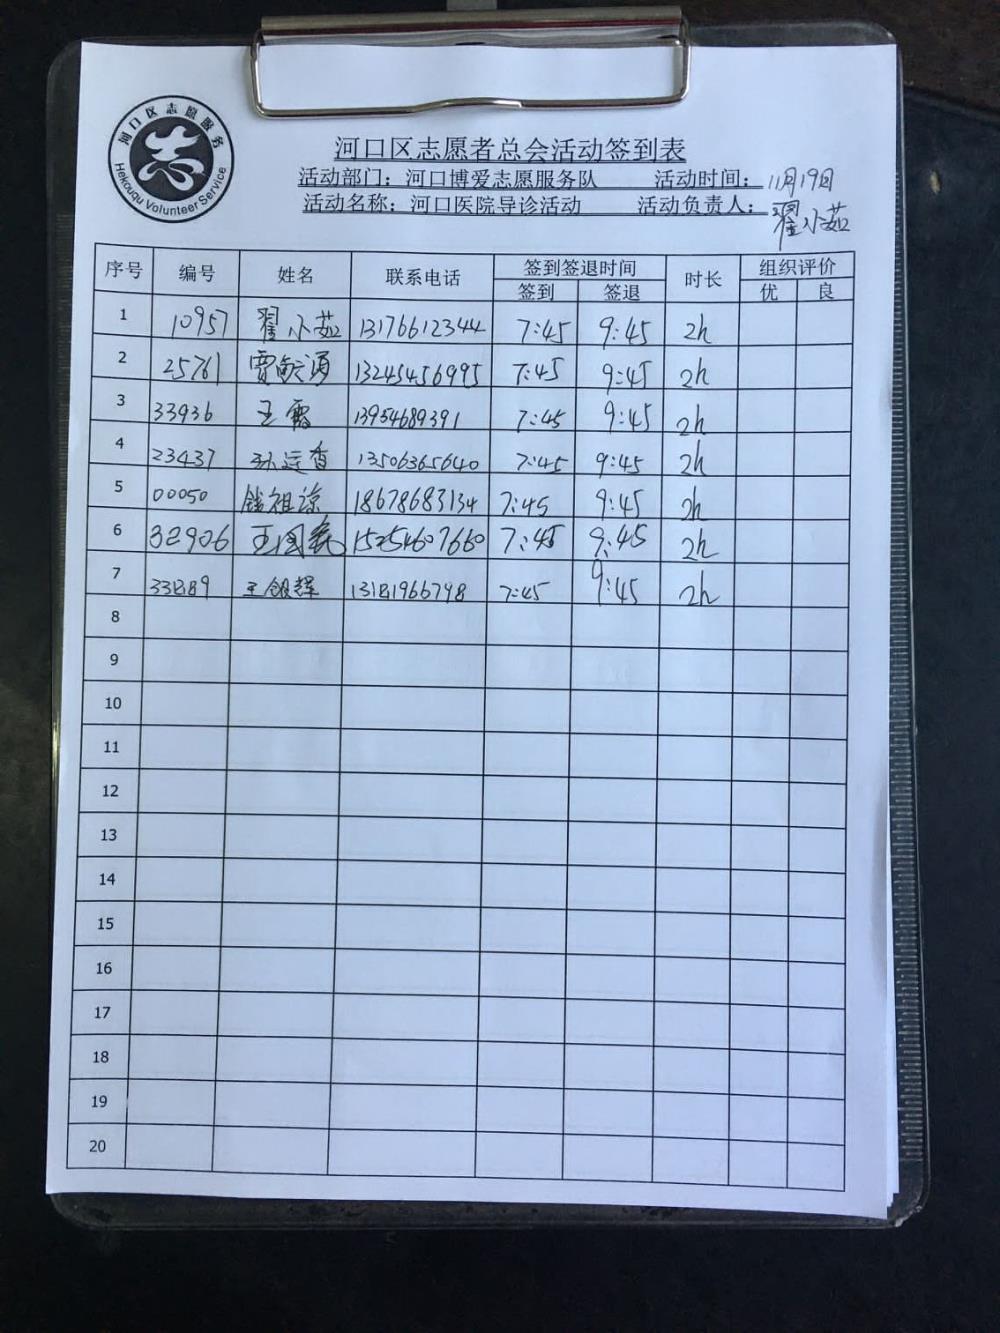 河口区志愿服务
志
Hekouqu Volunteer Service
河口区志愿者总会活动签到表
活动部门：河口博爱志愿服务队 活动时间：11月19日
活动名称：河口医院导诊活动 活动负责人：翟小茹
序号 编号 姓名 联系电话 签到签退时间 时长 组织评价
签到 签退 优 良
1 10957 翟小茹 13176612344 7:45 9:45 2h
2 25761 贾 13245456995 7:45 9:45 2h
3 33936 王霞 13954689391 7:45 9:45 2h
4 23437 孙运香 13506365640 7:45 9:45 2h
5 00050 钱祖谅 18678683134 7:45 9:45 2h
6 32906 王国 15254607660 7:45 9:45 2h
7 王银辉 13181966798 7:45 9:45 2h
8
9
10
11
12
13
14
15
16
17
18
19
20